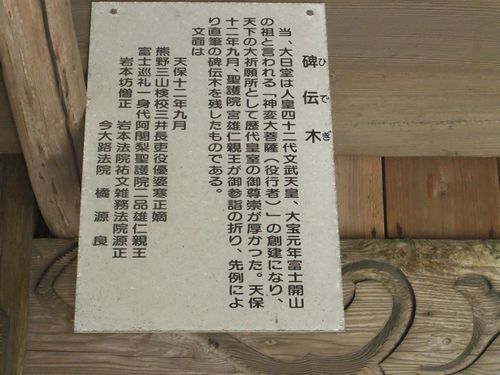 碑伝木
ひでぎ
当、大日堂は人皇四十二代文武天皇、大宝元年富士開山
の祖と言われる「神変大菩薩（役行者）」の創建になり、
天下の大祈願所として歴代皇室の御尊崇が厚かった。天保
十二年九月　聖護院宮雄仁親王が御参詣の折り、先例によ
り直筆の碑伝木を残したものである。
文面は
天保十二年九月
熊野三山検校三井長吏役優婆塞正嫡
富士巡礼一身代阿闍梨聖護院二品雄仁親王
岩本坊僧正　岩本法院祐文雑務法院源正
今大路法院　橘源良